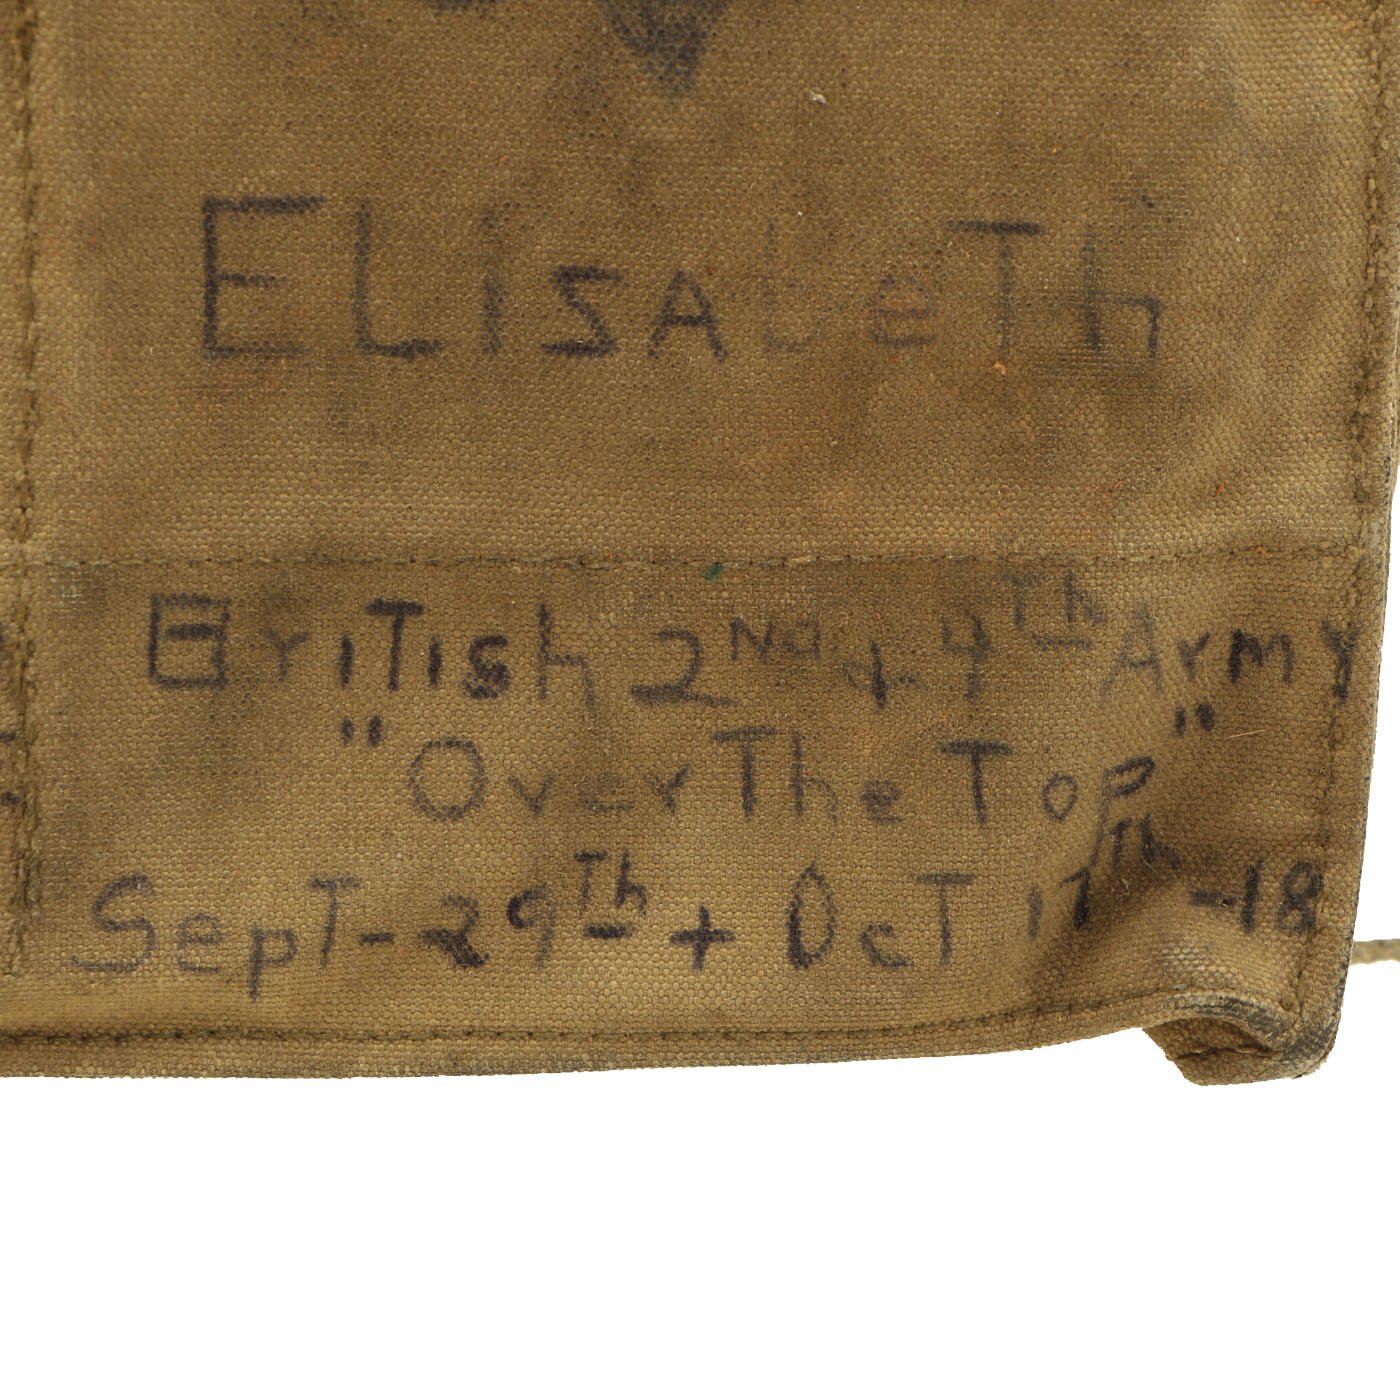 ELisAbeTh
BriTish 2Nd + 4Th Army
"Over The Top"
SepT - 29Th + OcT 17Th - 18